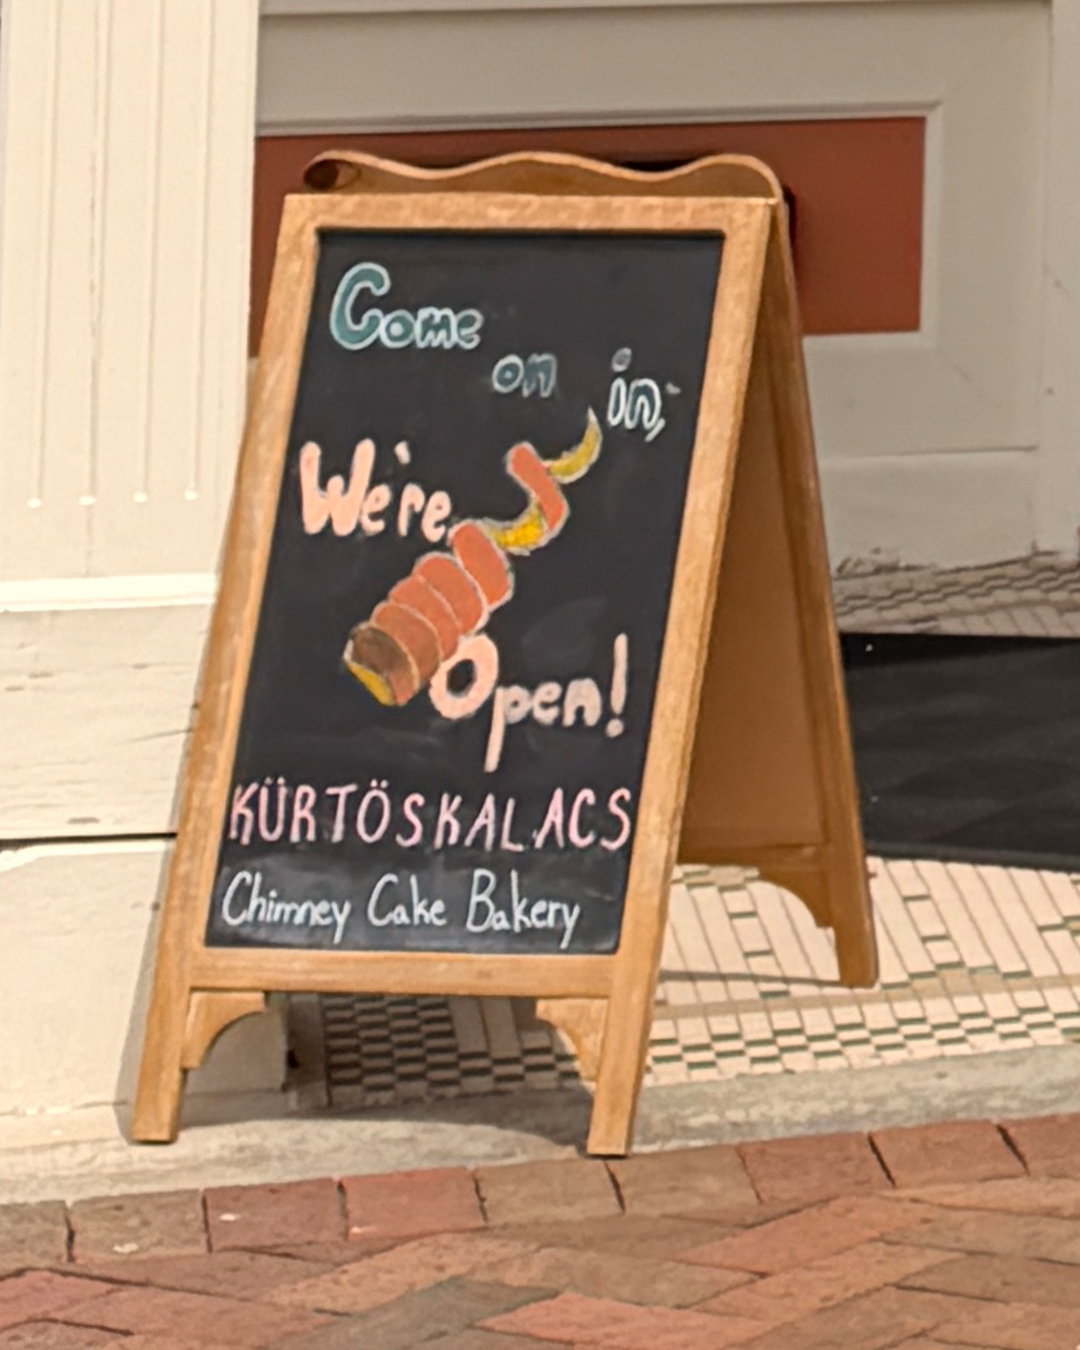 Come on in,
We're
Open!
KÜRTÖSKALACS
Chimney Cake Bakery